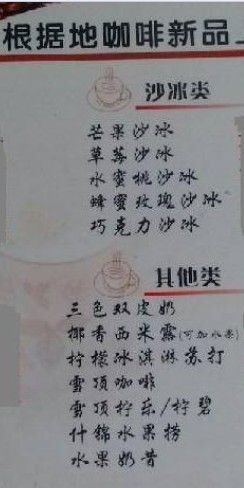 根据地咖啡新品上
沙冰类
芒果沙冰
草莓沙冰
水蜜桃沙冰
蜂蜜玫瑰沙冰
巧克力沙冰
其他类
三色双皮奶
椰香西米露(可加水果)
柠檬冰淇淋苏打
雪顶咖啡
雪顶柠乐/柠碧
什锦水果捞
水果奶昔